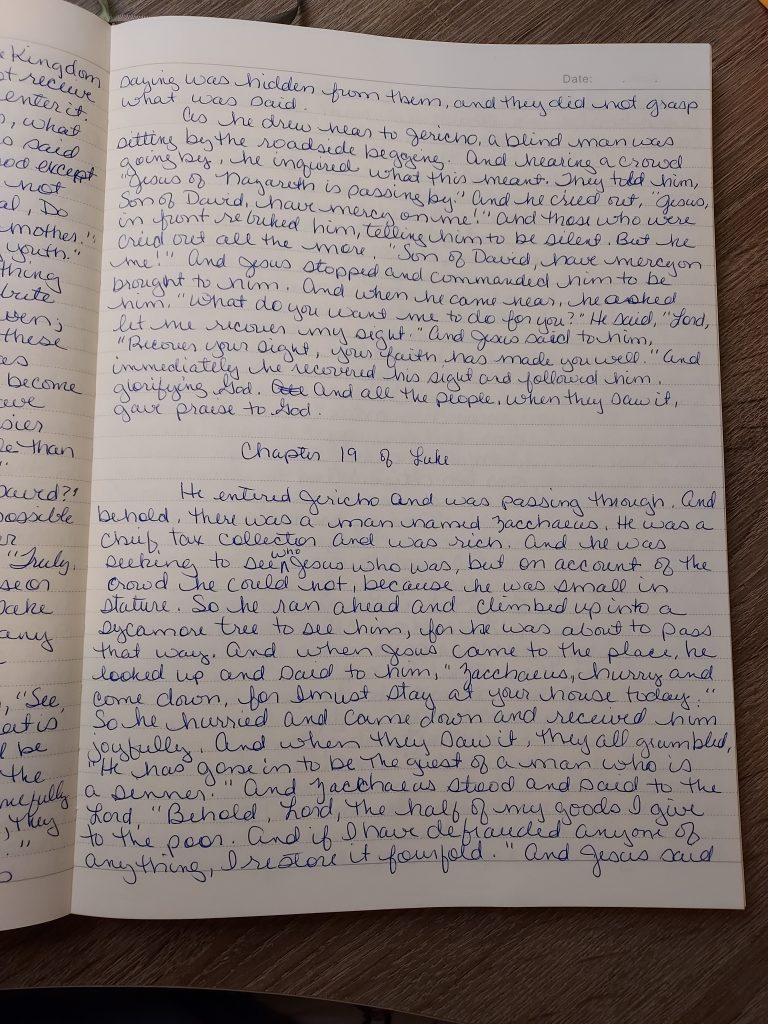 Kingdom
receive
enter it.
, what
said
except
not
, Do
mother."
youth."
thing
these
become
than
possible
"Truly,
any
, "See,
is
be
the
, they
Date:
saying was hidden from them, and they did not grasp
what was said.
As he drew near to Jericho, a blind man was
sitting by the roadside begging. And hearing a crowd
going by, he inquired what this meant. They told him,
"Jesus of Nazareth is passing by." And he cried out, "Jesus,
Son of David, have mercy on me!" And those who were
in front rebuked him, telling him to be silent. But he
cried out all the more, "Son of David, have mercy on
me!" And Jesus stopped and commanded him to be
brought to him. And when he came near, he asked
him. "What do you want me to do for you?" He said, "Lord,
let me recover my sight." And Jesus said to him,
"Recover your sight, your faith has made you well." And
immediately he recovered his sight and followed him,
glorifying God. And all the people, when they saw it,
gave praise to God.
Chapter 19 of Luke
He entered Jericho and was passing through. And
behold, there was a man named Zacchaeus. He was a
chief tax collector and was rich. And he was
seeking to see who Jesus who was, but on account of the
crowd he could not, because he was small in
stature. So he ran ahead and climbed up into a
sycamore tree to see him, for he was about to pass
that way. And when Jesus came to the place, he
looked up and said to him, "Zacchaeus, hurry and
come down, for I must stay at your house today."
So he hurried and came down and received him
joyfully. And when they saw it, they all grumbled,
"He has gone in to be the guest of a man who is
a senner." And Zacchaeus stood and said to the
Lord, "Behold, Lord, the half of my goods I give
to the poor. And if I have defrauded anyone of
anything, I restore it fourfold." And Jesus said